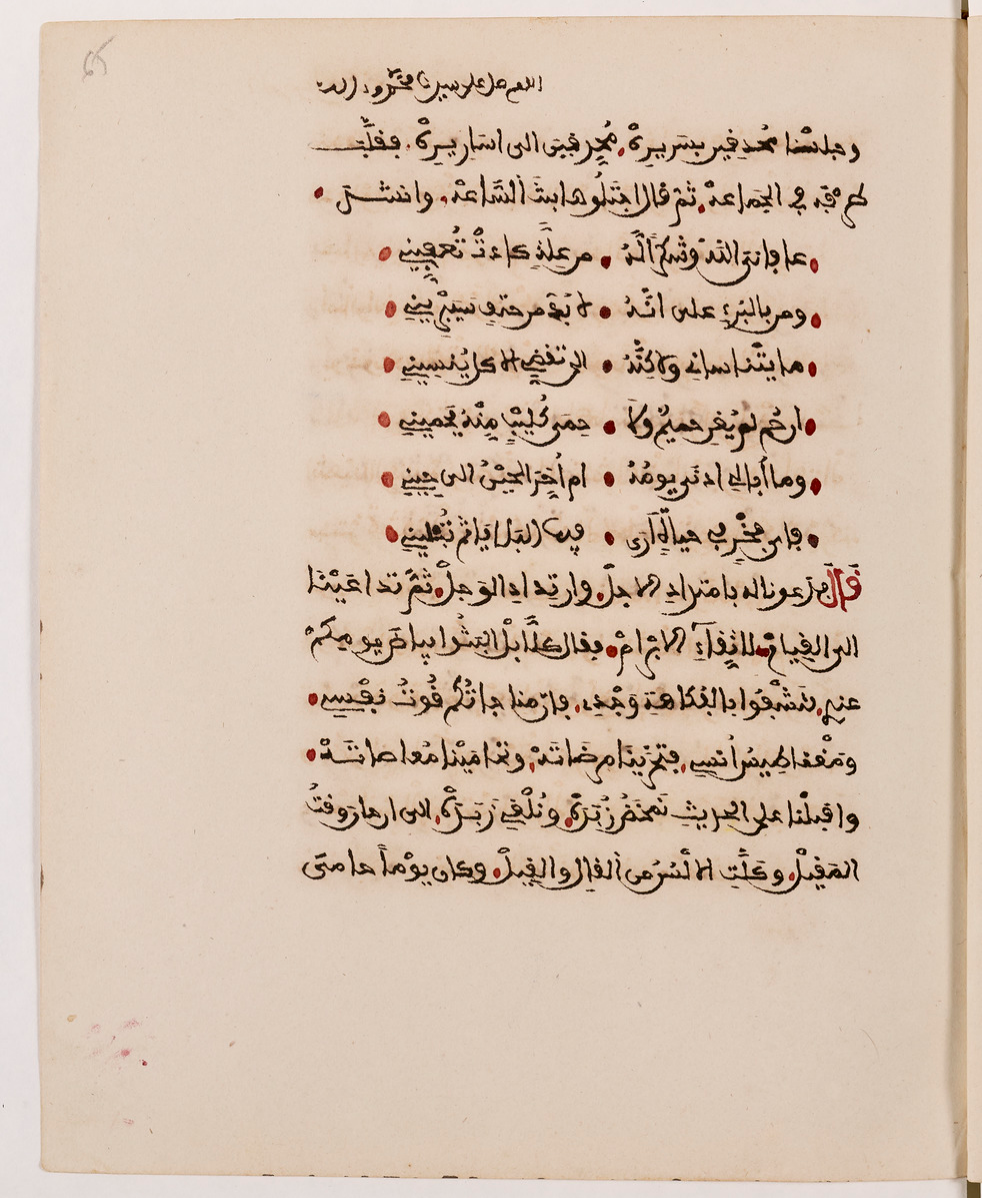 65
اللهم صل على سيدنا محمد وءاله
وجلسنا محدقين بسريره، محدقين الى اساريره. فقلب
طرفه في الجماعة، ثم قال اجتلوها ابنة الساعة، وانشد
عافاني الله وشكرا له من علة كادت تعفيني
ومن بالبرء على انه لا بد من حتف سيبريني
ما يتناساني ولاكنه الى تقضي الاكل ينسيني
ان حم لم يغن حميم ولا حمى كليب منه يحميني
وما أبالي ادنى يومه ام أخر الحين الى حين
فاي فخر في حياة ارى فيها البلايا ثم تبليني
قال فدعونا له بامتداد الاجل، وارتداد الوجل، ثم تداعينا
الى القيام، لاتقاء الابرام، فقال كلا بل البثوا بياض يومكم
عندي، لتشفوا بالفكاهة وجدي، فان مناجاتكم قوت نفسي،
ومغناطيس أنسي، فتحرينا مرضاته، وتحامينا معاصاته،
واقبلنا على الحديث نمخض زبده، ونلغي زبده، الى ان حان وقت
المقيل، وكلت الالسن من القال والقيل، وكان يوما حامي